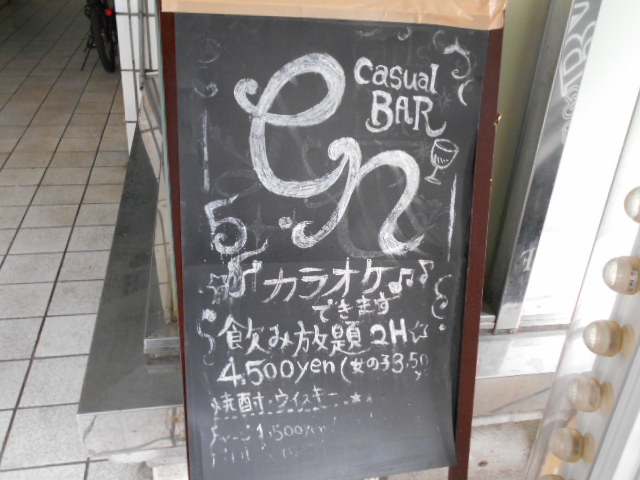 casual
BAR
en
5F
カラオケ♪
できます
飲み放題2H☆
4,500yen(女の子3,50
焼酎・ウイスキー
チャージ1,500